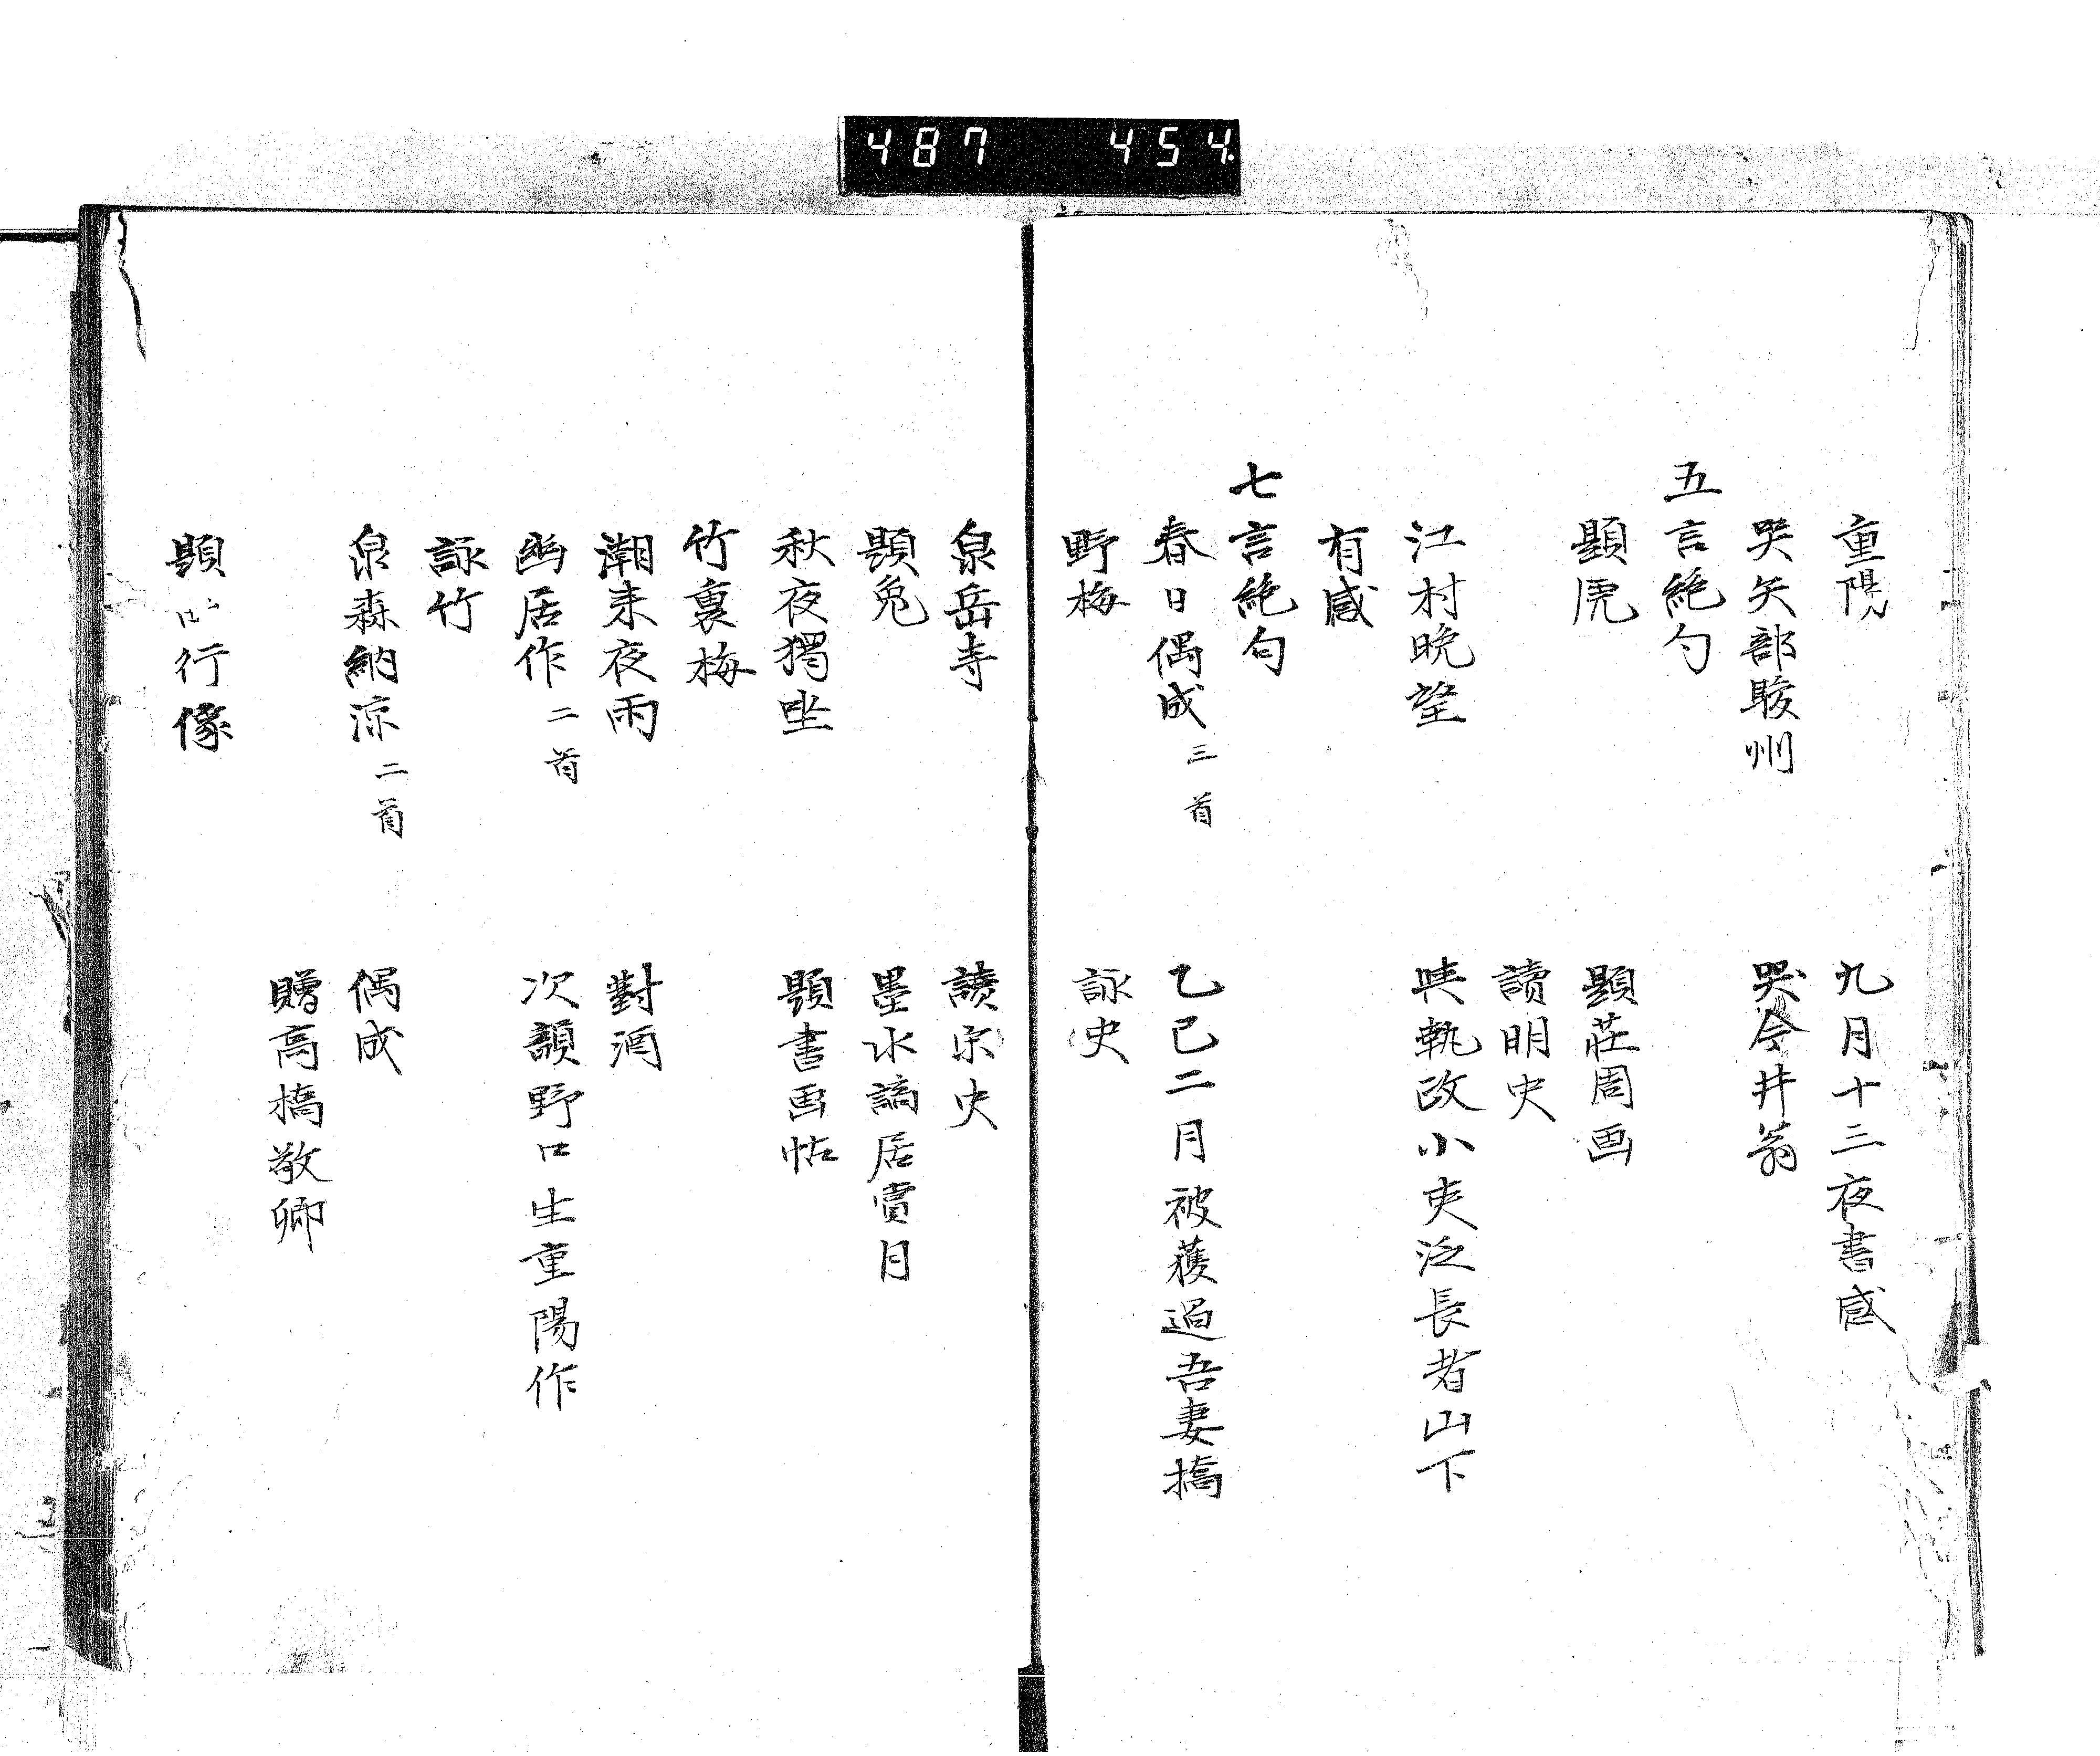 487 454
重陽 九月十三夜書感
哭矢部駿州 哭今井翁
五言絶句
題虎 題莊周画
讀明史
江村晩望 与執政小吏泛長者山下
有感
七言絶句
春日偶成 三首 乙巳二月被獲過吾妻橋
野梅 詠史
泉岳寺 讀宋史
題兔 墨水謫居賞月
秋夜獨坐 題書画帖
竹裏梅
潮来夜雨 對酒
幽居作 二首 次韻野口生重陽作
詠竹
泉森納涼 二首 偶成
贈高橋敬卿
題 行像